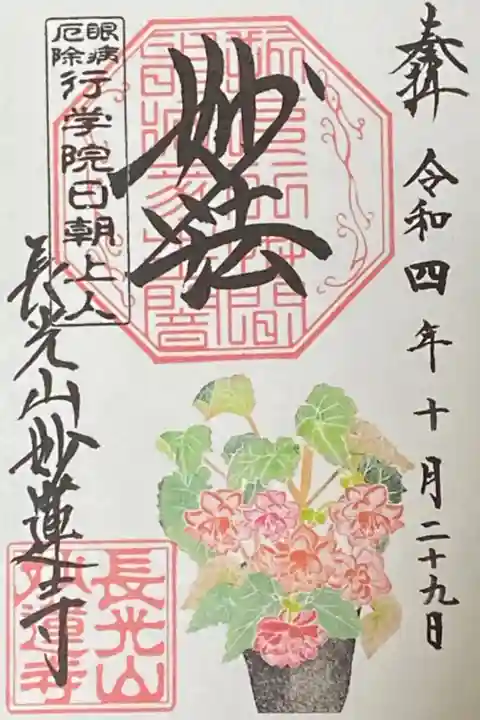 奉拝
令和四年十月二十九日
妙法
眼病
厄除
行学院日朝上人
長光山妙蓮寺
長光山
妙蓮寺